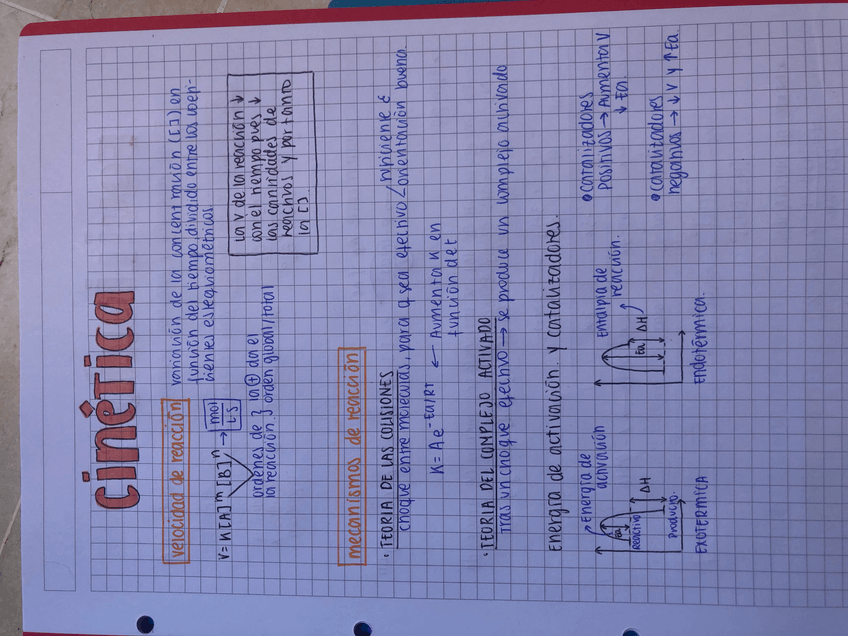 cinética
velocidad de reacción
variación de la concentración ([ ]) en
función del tiempo, dividido entre los coefi-
cientes estequiométricos.
V = K [A]ᵐ [B]ⁿ → mol / L·S
órdenes de la reacción } la ⊕ da el orden global/total
la V de la reacción ↓
con el tiempo pues ↓
las cantidades de
reactivos y por tanto
la [ ].
mecanismos de reacción
· TEORÍA DE LAS COLISIONES
choque entre moléculas, para q sea efectivo < suficiente E
orientación buena.
K = A e^-Ea/RT ← Aumenta K en
función de t
· TEORÍA DEL COMPLEJO ACTIVADO
tras un choque efectivo → se produce un complejo activado
Energía de activación y catalizadores.
Energía de
activación
Ea
Reactivo
ΔH
Producto.
EXOTÉRMICA
Entalpía de
reacción.
Ea
ΔH
ENDOTÉRMICA.
• catalizadores
positivos → Aumenta V
↓ Ea.
• catalizadores
negativos → ↓ V y ↑ Ea.